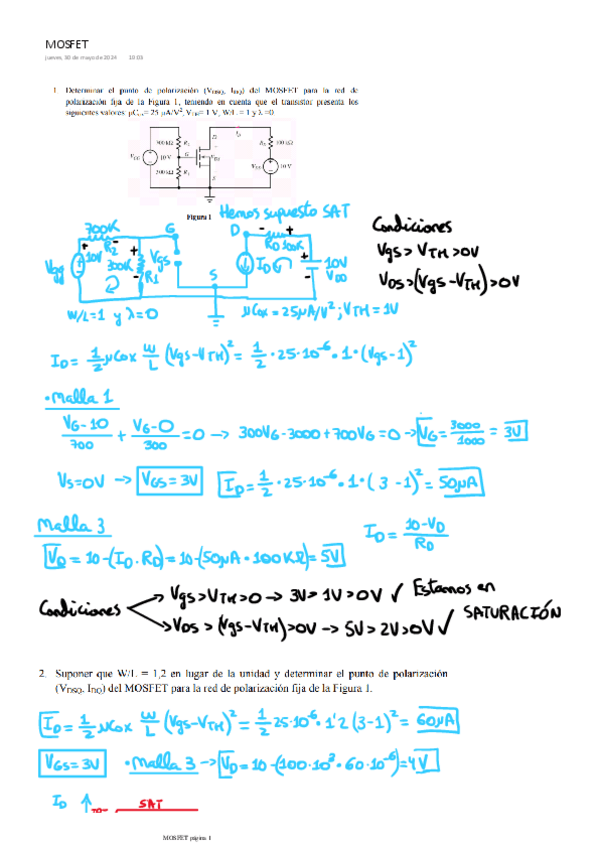 MOSFET
jueves, 30 de mayo de 2024 10:03
1. Determinar el punto de polarización (VDSQ, IDQ) del MOSFET para la red de
polarización fija de la Figura 1, teniendo en cuenta que el transistor presenta los
siguientes valores: μCox= 25 μA/V², VTH= 1 V, W/L = 1 y λ =0.
700 kΩ R2
300 kΩ R1
10 V
G
S
100 kΩ
10 V
Figura 1
Hemos supuesto SAT
700K G D - + RD 100K
Vgg 10V R2 300K R1 Vgs S ID 10V VDD
W/L=1 y λ=0
μCox=25μA/V²; VTH=1V
Condiciones
Vgs>VTH>0V
VDS>(Vgs-VTH)>0V
ID = 1/2 μCox W/L (Vgs-VTH)² = 1/2 · 25·10⁻⁶ · 1 · (Vgs-1)²
· Malla 1
VG-10/700 + VG-0/300 = 0 → 300VG-3000+700VG=0 → VG = 3000/1000 = 3V
VS=0V → VGS=3V ID = 1/2 · 25·10⁻⁶ · 1 · (3-1)² = 50μA
Malla 3
ID = 10-VD/RD
VD = 10-(ID·RD) = 10-(50μA·100KΩ) = 5V
Condiciones
Vgs>VTH>0 → 3V>1V>0V ✓
VDS>(Vgs-VTH)>0V → 5V>2V>0V ✓
Estamos en
SATURACIÓN
2. Suponer que W/L = 1,2 en lugar de la unidad y determinar el punto de polarización
(VDSQ, IDQ) del MOSFET para la red de polarización fija de la Figura 1.
ID = 1/2 μCox W/L (Vgs-VTH)² = 1/2 25·10⁻⁶ · 1'2 (3-1)² = 60μA
VGS=3V · Malla 3 → VD = 10-(100·10³·60·10⁻⁶) = 4V
ID ↑ SAT
MOSFET página 1